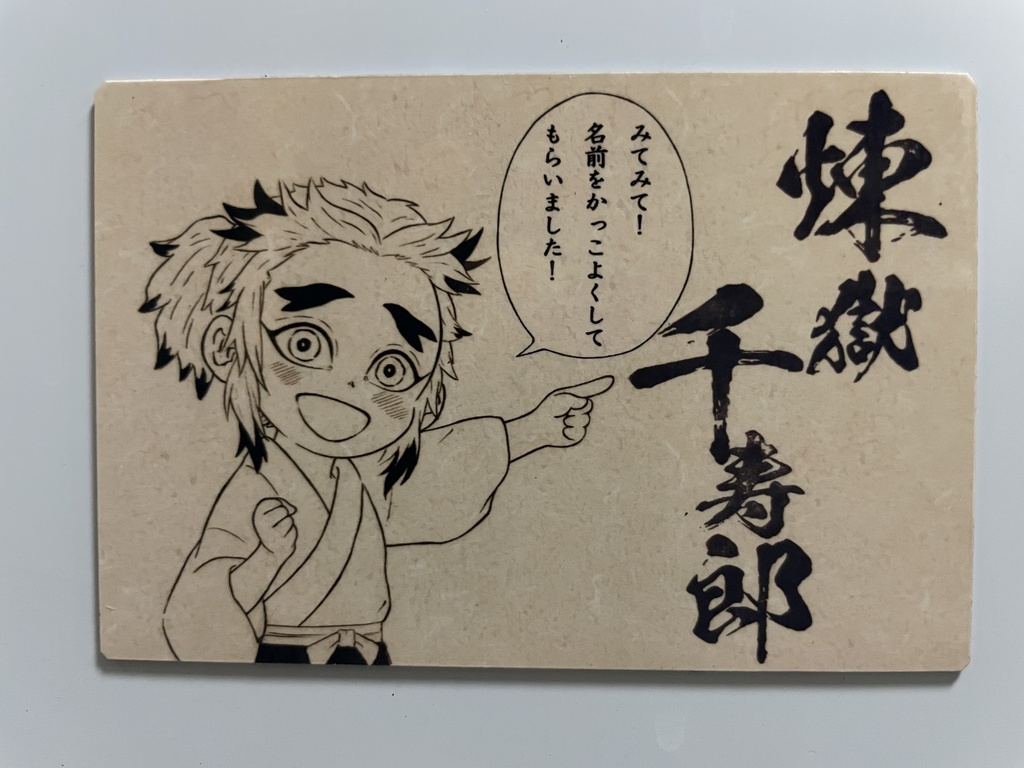 煉獄
千寿郎
みてみて！
名前をかっこよくして
もらいました！